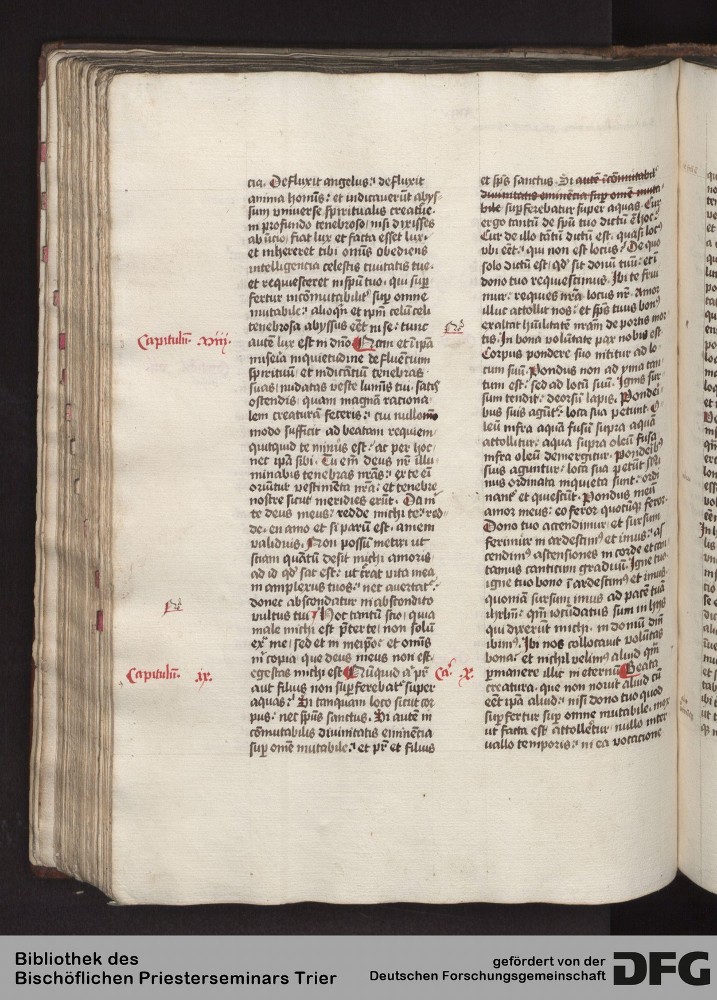 cia. Defluxit angelus: defluxit
anima hominis: et indicauerunt abys
sum vniuerse spiritualis creature
in profundo tenebroso, nisi dixisses
ab inicio, fiat lux et facta esset lux,
et inhereret tibi omnis obediens
intelligencia celestis ciuitatis tue,
et requiesceret in spiritu tuo, qui super
fertur incommutabiliter super omne
mutabile: alioquin et ipsum celum celi
tenebrosa abyssus esset in se: nunc
Capitulum. xviij.
autem lux est in domino Nam et in ipsa
misera inquietudine defluentium
spirituum et indicantium tenebras
suas, nudatas veste luminis tui, satis
ostendis, quam magnam raciona
lem creaturam feceris: cui nullomo
modo sufficit ad beatam requiem,
quitquid te minus est: ac per hoc
nec ipsa sibi. Tu enim deus noster illu
minabis tenebras nostras: ex te
oriuntur vestimenta nostra: et tenebre
nostre sicut meridies erunt. Da michi
te deus meus: redde michi te: red
de, en amo et si parum est, amem
validius. Non possum metiri vt
sciam quantum desit michi amoris
ad id quod sat est: ut currat vita mea
in amplexus tuos: nec auertatur
donec abscondatur in abscondito
vultus tui Hoc tantum scio, quia
male michi est preter te, non solum
extra me, sed et in meipso: et omnis
michi copia que deus meus non est,
Capitulum. ix.
egestas michi est Nunquid aut pater
aut filius non superferebatur super
aquas: Si tanquam loco sicut cor
pus: nec spiritus sanctus. Si autem in
commutabilis diuinitatis eminencia
super omne mutabile: et pater et filius
et spiritus sanctus. Si autem incommutabilis
diuinitatis eminencia super omne muta
bile superferebatur super aquas. Cur
ergo tantum de spiritu tuo dictum est hoc:
Cur de illo tantum dictum est, quasi locus
vbi esset: qui non est locus: De quo
solo dictum est, quod sit donum tuum: et in
dono tuo requiescimus. Ibi te frui
mur: requies nostra, locus noster. Amor
illuc attollit nos: et spiritus tuus bonus
exaltat humilitatem nostram de portis mor
tis. In bona voluntate pax nobis est
Corpus pondere suo nititur ad lo
cum suum. Pondus non ad yma tan
tum est: sed ad locum suum. Ignis sur
sum tendit: deorsum lapis. Ponderi
bus suis aguntur: loca sua petunt O
leum infra aquam fusum supra aquam
attollitur: aqua supra oleum fusa
infra oleum demergitur. Ponderibus
suis aguntur: loca sua petunt Mi
nus ordinata inquieta sunt: ordi
nantur et quiescunt. Pondus meum
amor meus: eo feror quocumque feror.
Dono tuo accendimur: et sursum
ferimur inardescimus et imus: as
cendimus ascensiones in corde et can
tamus canticum graduum. Igne tuo
igne tuo bono inardescimus et imus
quoniam sursum imus ad pacem tuam
iherusalem: quoniam iocundatus sum in hijs
qui dixerunt michi, in domum domini
ibimus. Ibi nos collocauit voluntas
bona: et nichil velimus aliud quam
Ca. x.
permanere illic in eternum Beata
creatura, que non norit aliud cum
esset ipsa aliud: nisi dono tuo quod
superfertur super omne mutabile, mox
ut facta est attolleretur, nullo inter
uallo temporis: in ea vocacione
Bibliothek des
Bischöflichen Priesterseminars Trier
gefördert von der
Deutschen Forschungsgemeinschaft
DFG